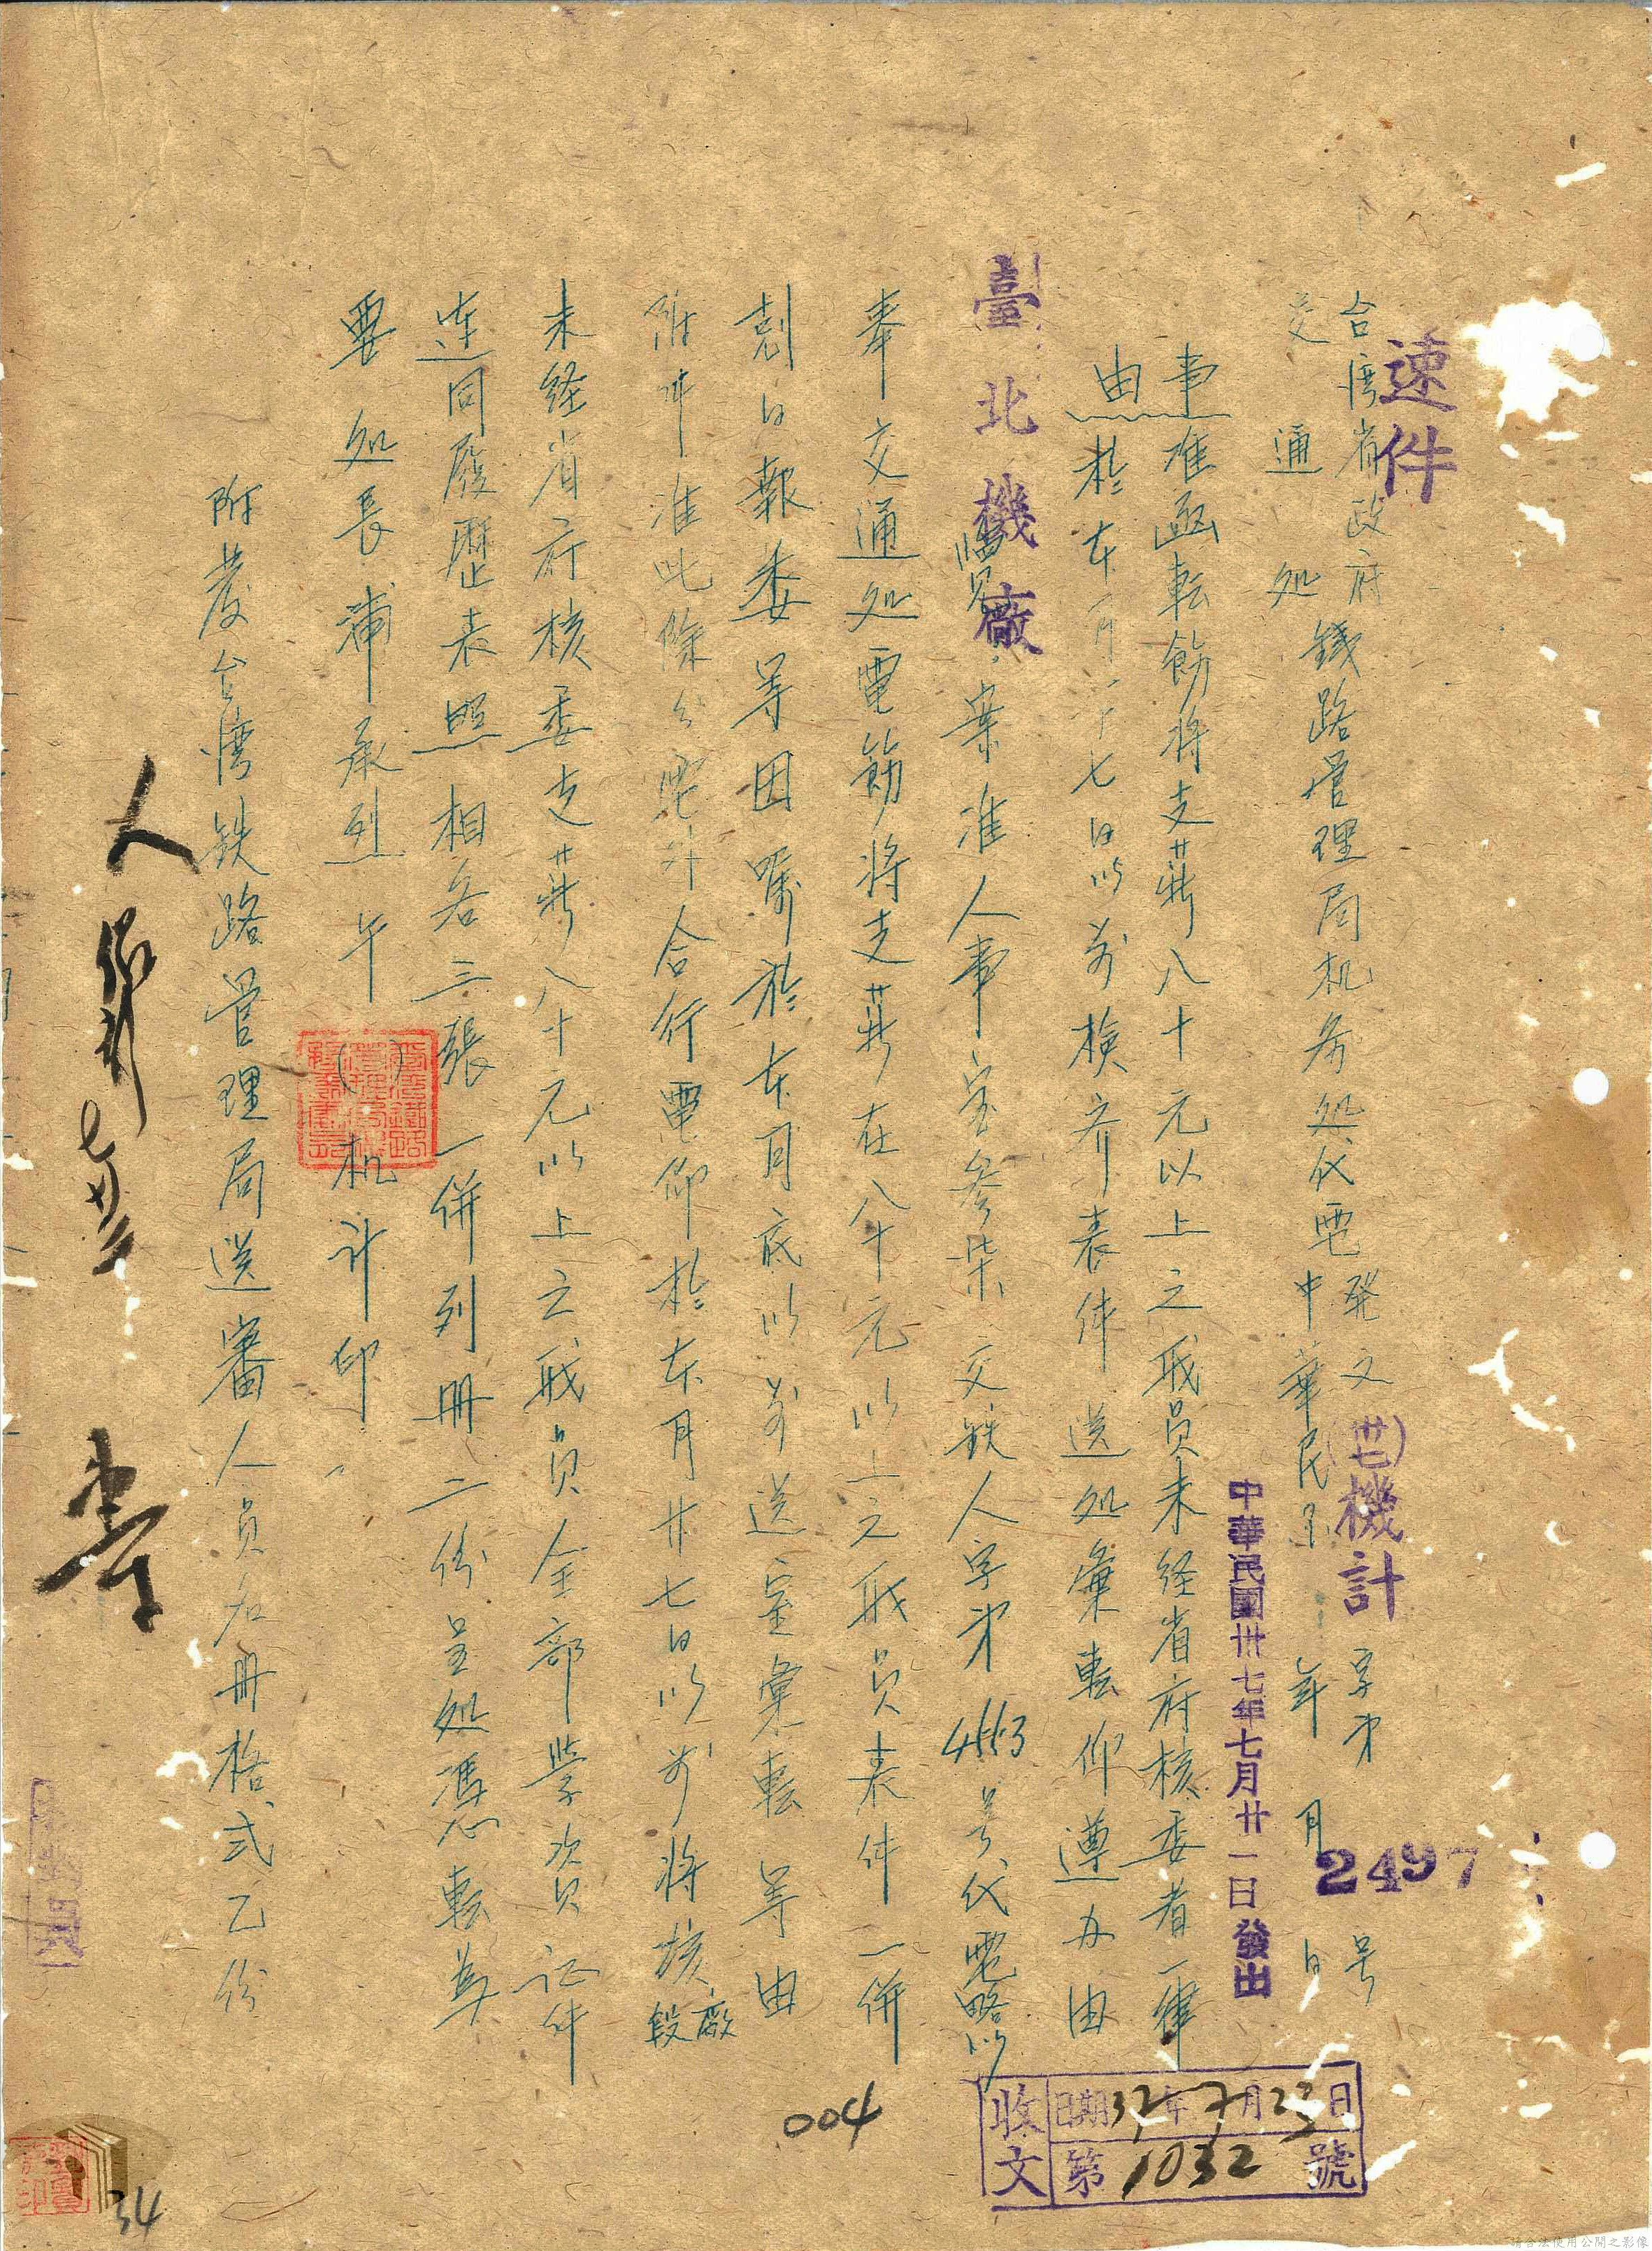 速件
台灣省政府
交通处
鉄路管理局机务处代电
発文(卅七)機計字第2497号
中華民國 年 月 日
中華民國卅七年七月廿一日發出
事准函転飭将支薪八十元以上之職員未经省府核委者一律
由於本月二十七日以前檢齐表件送処彙転仰遵办由
臺北機廠
案准人事室參柒交鉄人字第4553号代電略以
奉交通処電飭将支薪在八十元以上之職員表件一併
剋日報委等因嘱於本月底以前送室彙転等由
附件准此除分電外合行電仰於本月廿七日以前将該廠段
未経省府核委支薪八十元以上之職員全部學資証件
連同履歷表照相各三張一併列册二份呈処憑転為
要処長浦承烈午( )机計印
附發台灣鉄路管理局送審人員名册格式乙份
人
七廿三
收文
日期37年7月23日
第1032號
004
34